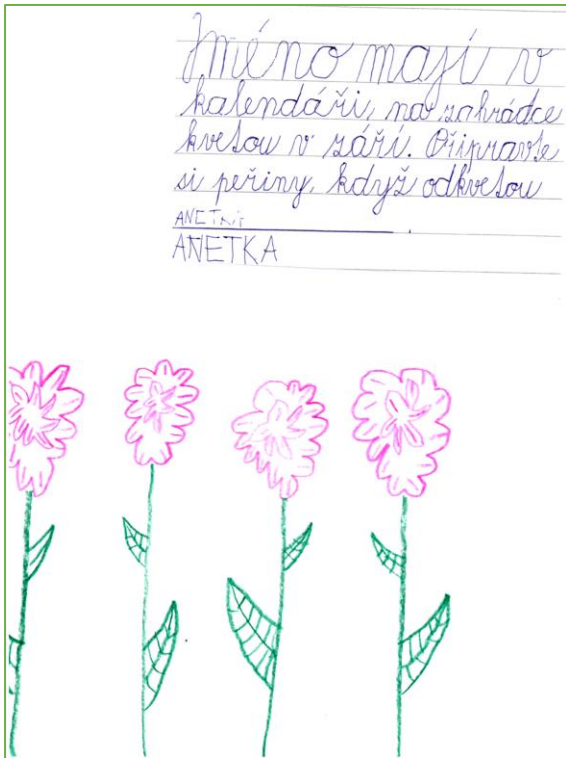 Jméno mají v
kalendáři, na zahrádce
kvetou v září. Připravte
si peřiny, když odkvetou
ANETKA
ANETKA